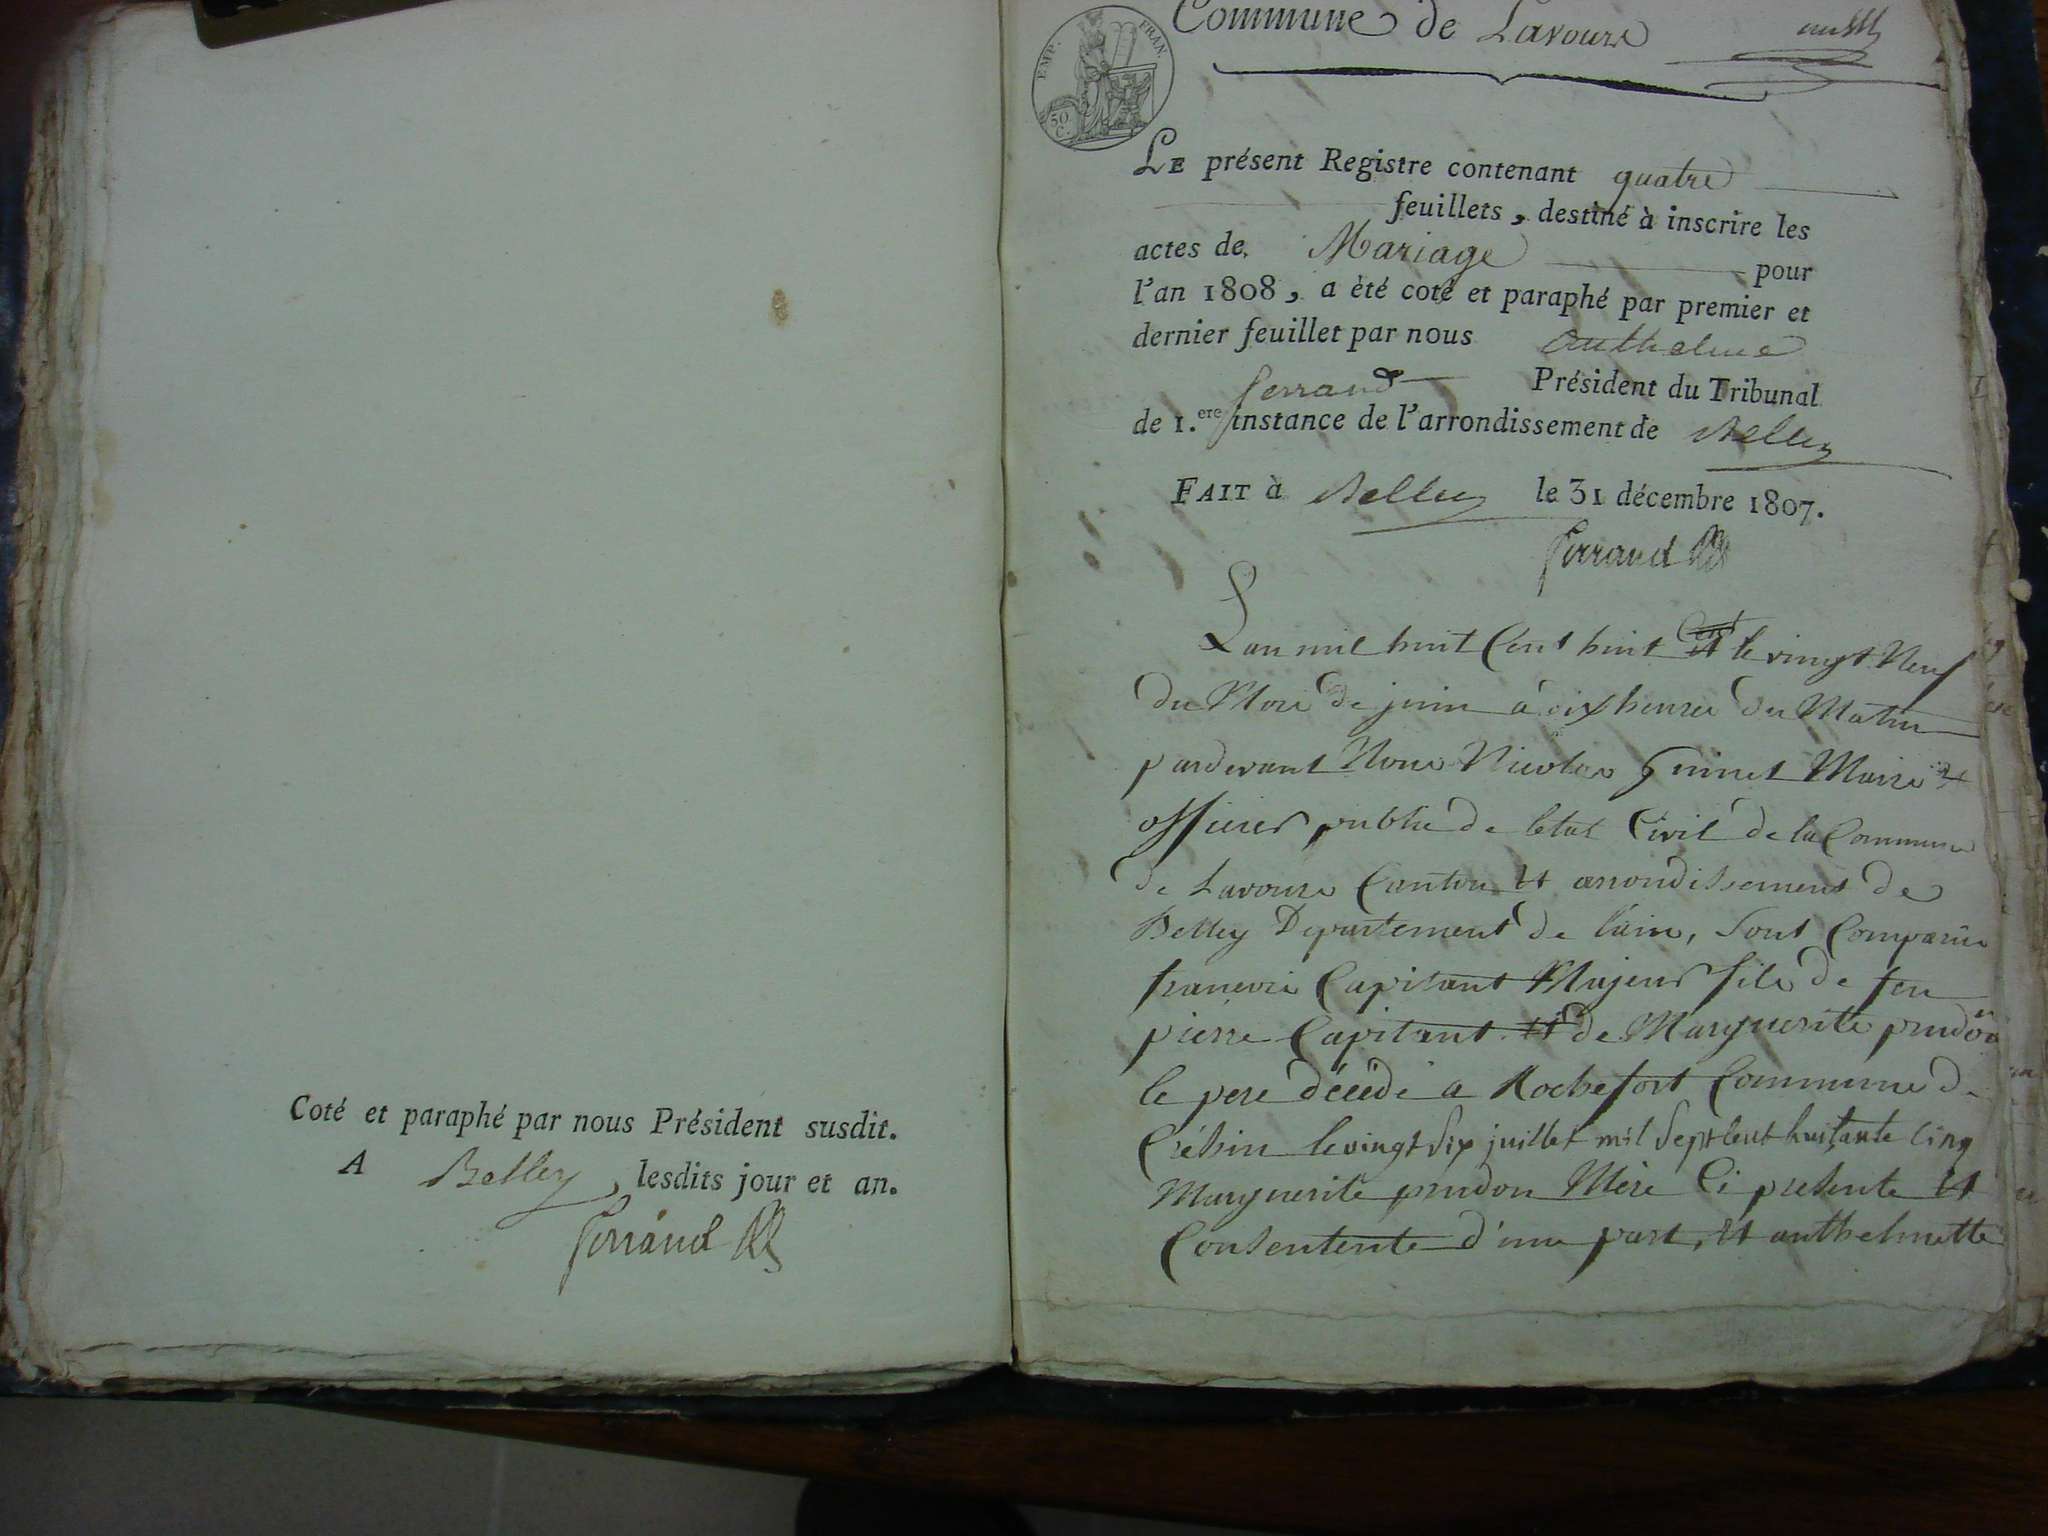 Coté et paraphé par nous Président susdit.
A Belley, lesdits jour et an.
ferrand
Commune de Lavours
EMP. FRAN.
50 C.
LE présent Registre contenant quatre
feuillets, destiné à inscrire les
actes de Mariage pour
l'an 1808, a été coté et paraphé par premier et
dernier feuillet par nous anthelme
ferrand Président du Tribunal
de 1.ere instance de l'arrondissement de Belley
FAIT à Belley le 31 décembre 1807.
ferrand
Lan mil huit Cent huit et le vingt Neuf
du Mois de juin à dix heures du Matin
pardevant Nous Nicolas Guinet Maire et
officier public de letat Civil de la Commune
de Lavours Canton et arrondissement de
Belley Departement de lain, Sont Comparus
francois Capitant Majeur fils de feu
pierre Capitant et de Marguerite prudon
le pere décédé a Rochefort Commune de
Créssin le vingt Six juillet mil Sept Cent huitante Cinq
Marguerite prudon Mère Ci presente et
Consentente d'une part, et anthelmette